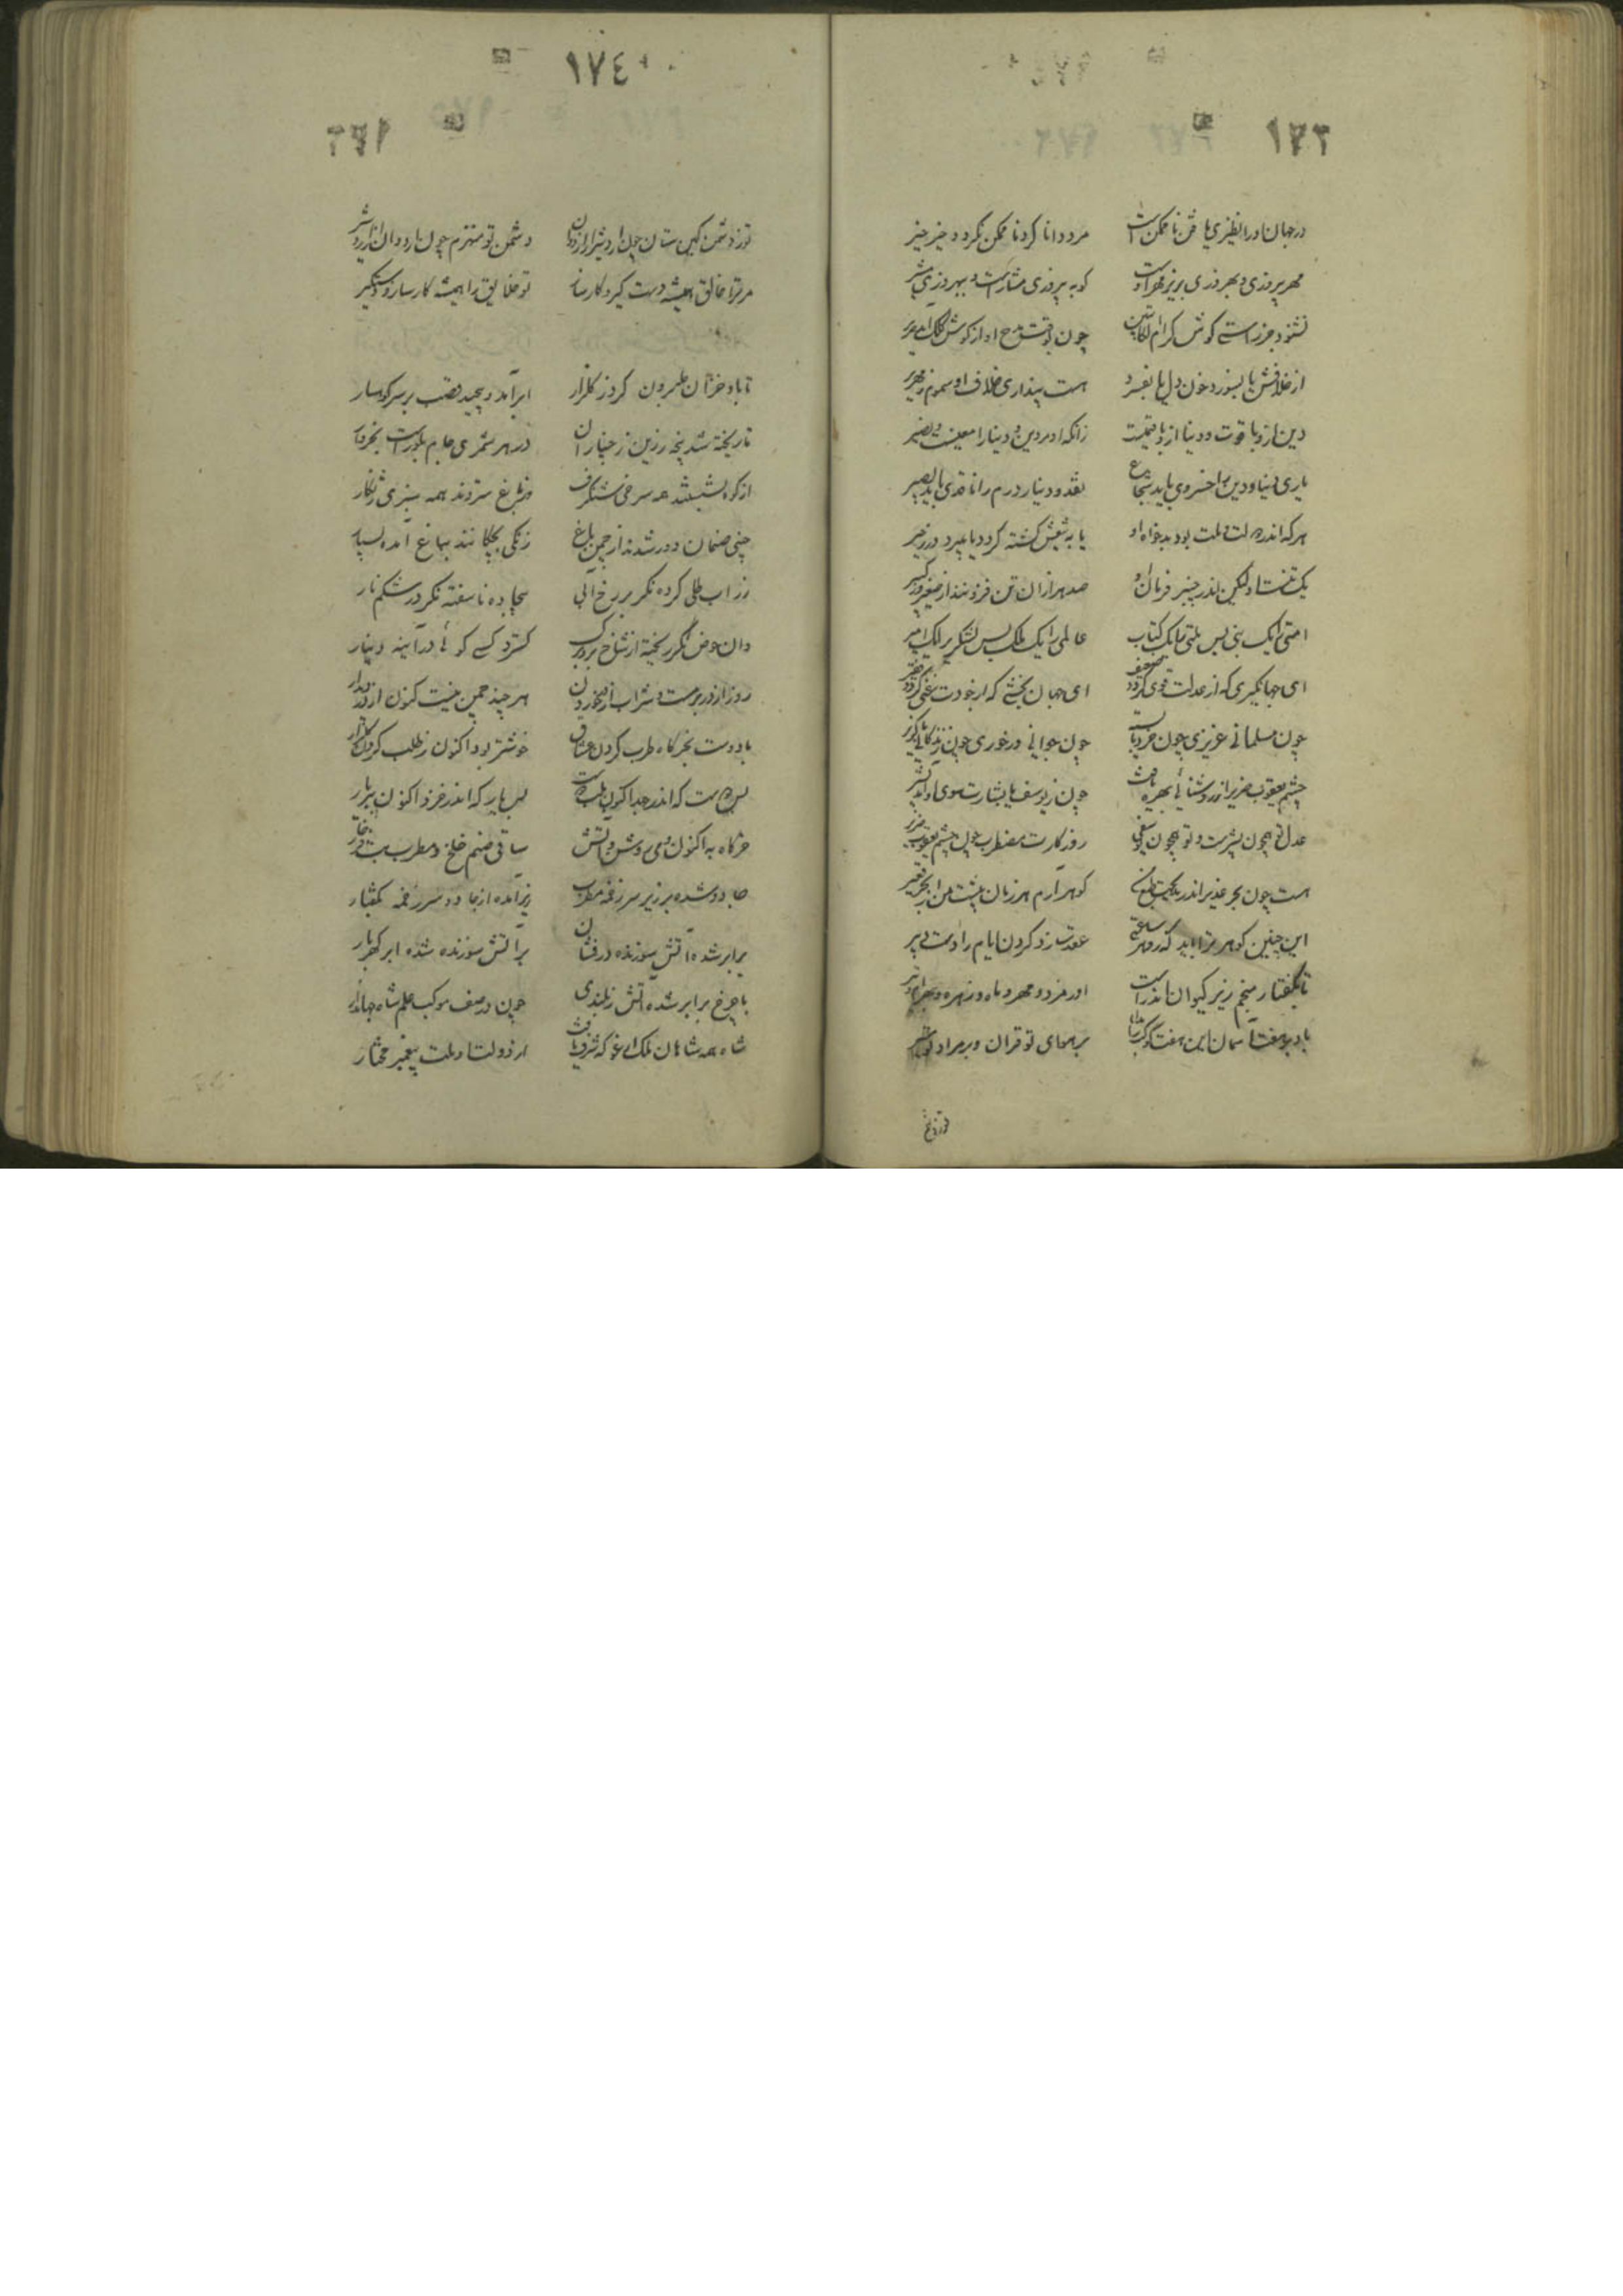 ١٧٣
در جهان او را نظیری یافتن ناممکن است مرد دانا کرد ناممکن نکردد خیر خیر
مهر پیروزی و بهروزی بریز مهر اوست کو به پیروزی مشارست و ببهروزی مشیر
نشنود جز راستی کوش کرام الکاتبین چون نوشت مدح او از کوش کلک آمد صریر
از خلافش یا بسوزد خون دل یا بفسرد هست پنداری خلاف او سموم و زمهریر
دین ازو با قوت و دنیا ازو با قیمتست زانکه او مر دین و دنیا را معینست و نصیر
یاری دنیا و دین را خسروی باید شجاع نقد و دینار و درم را ناقدی باید بصیر
هرکه اندر دولت و ملت بود بدخواه او یا به تیغش کشته کردد یا بمیرد در زحیر
یک تنست او لیکن اندر چنبر فرمان او صد هزاران تن فزونند از صغیر و از کبیر
امتی را یک نبی بس ملتی را یک کتاب عالمی را یک ملک بس لشکری را یک امیر
ای جهانگیری که از عدلت قوی کردد ضعیف ای جهان بخشی که از جودت غنی کردد فقیر
چون مسلمانی عزیزی چون خرد بایسته چون جوانی در خوری چون زندکانی ناکزیر
چشم یعقوب ضریر از روشنایی بهره یافت چون ز یوسف با بشارت سوی او آمد بشیر
عدل تو همچون بشیرست و تو همچون یوسفی روزکارت مضطرب چون چشم یعقوب ضریر
هست چون بحر غدیر اندر مدیحت طبع من کوهر آرم هر زمان پیشت من از بحر غدیر
این چنین کوهر ترا باید که در هر ساعتی عدت زد کردن ایام را دست دبیر
تا بگفتار منجم زیر کیوان اندر است اورمزد و مهر و ماه و زهره و بهرام و تیر
باد بر هفت آسمان این هفت کوکب را مدام بر هوای تو قران و بر مراد تو مسیر
تو ز دشمن
١٧٤
تو ز دشمن کین ستان چون اردشیر از اردوان دشمن تو منهزم چون اردوان از اردشیر
مر ترا خالق همیشه دست گیر و کارساز تو خلایق را همیشه کارساز و دستگیر
تا باد خزان حله برون کرد ز کلزار ابر آمد و پیچید قصب بر سر کوهسار
تا ریخته شد پنجه زرین ز چناران در هر شمری جام بلورست بخروار
از کوه بشستند همه سرخی شنگرف وز باغ ستردند همه سبزی زنگار
چینی صنمان دور شدند از چمن باغ زنکی بچکانند بباغ آمده بسیار
زر آب طلی کرده نکر بر رخ آبی بیجاده ناسفته نکر در شکم نار
وان حوض نکر ریخته از شاخ برو برک کسترد کسی کوئی در آینه دینار
روز از در بزمست و شراب از در خوردن هر چند چمن نیست کنون از در دیدار
با دوست بخرکاه طرب کردن عشاق خوشتر بود اکنون ز طلب کردن کلزار
بس دست که اندر جدا کنون بطلب دست بس یار که اندر خز و اکنون ببر یار
خرکاه به اکنون و می روشن و آتش ساقی صنم خلخ و مطرب بت فرخار
جادو شده بر زیر سر زخمه مطرب زیر آمده از جادو سر زخمه بکفتار
برابر شده آتش سوزنده درفشان بر آتش سوزنده شده ابر کهربار
با چرخ برابر شده آتش ز بلندی چون در صف موکب علم شاه جهاندار
شاه همه شاهان ملک ارغو که شرف یافت زو دولت و ملت پیغمبر مختار